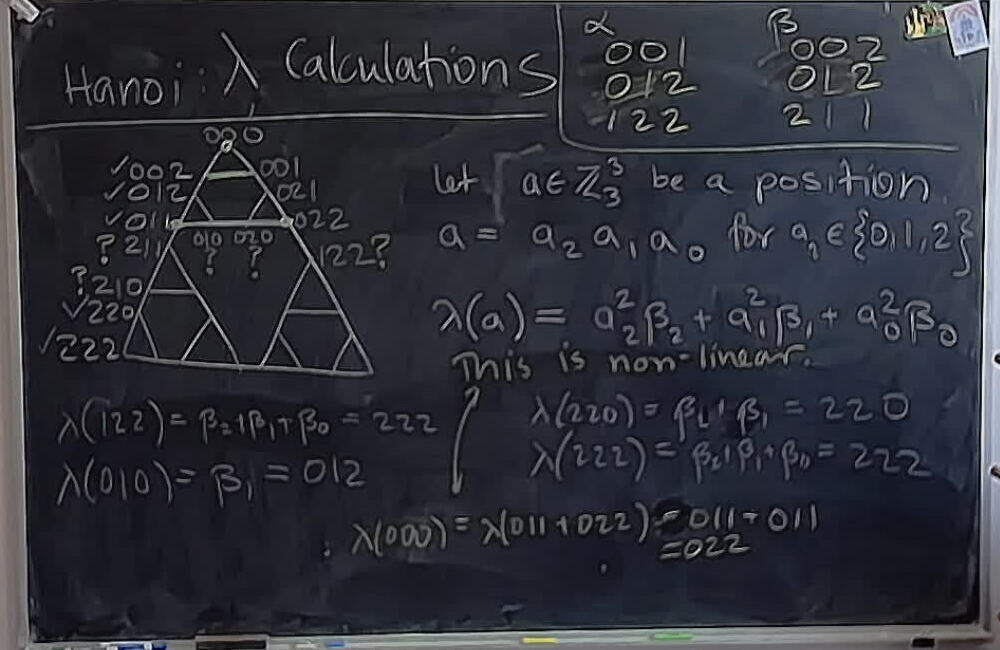 Hanoi: λ Calculations
α
001
012
122
β
002
012
211
000
✓002
001
✓012
021
✓011
022
? 211
010
020
122?
?
?
?210
✓220
✓222
Let a∈Z₃³ be a position.
a = a₂a₁a₀ for aᵢ∈{0,1,2}
λ(a) = a₂²β₂ + a₁²β₁ + a₀²β₀
This is non-linear.
λ(122) = β₂+β₁+β₀ = 222
λ(220) = β₂+β₁ = 220
λ(010) = β₁ = 012
λ(222) = β₂+β₁+β₀ = 222
λ(000) = λ(011+022) = 011+011
=022